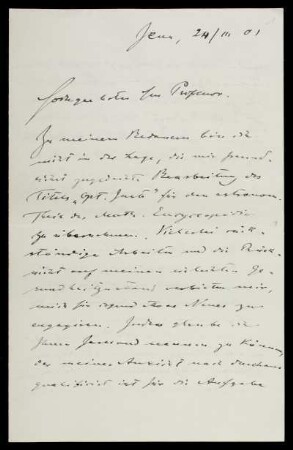 Jena, 24/III 01
Hochgeehrter Herr Professor.
Zu meinem Bedauern bin ich
nicht in der Lage, die mir freund-
lichst zugedachte Bearbeitung des
Titels „Opt. Instr." für den astronom.
Theil der Math. Encyclopädie
zu übernehmen. Vielerlei rück-
ständige Arbeiten und die Rück-
sicht auf meinen Ge-
sundheitszustand verbieten mir,
mich für irgend etwas Neues zu
engagiren. Indes glaube ich
Ihnen Jemand nennen zu können,
der meiner Ansicht nach durchaus
qualificirt ist für die Aufgabe